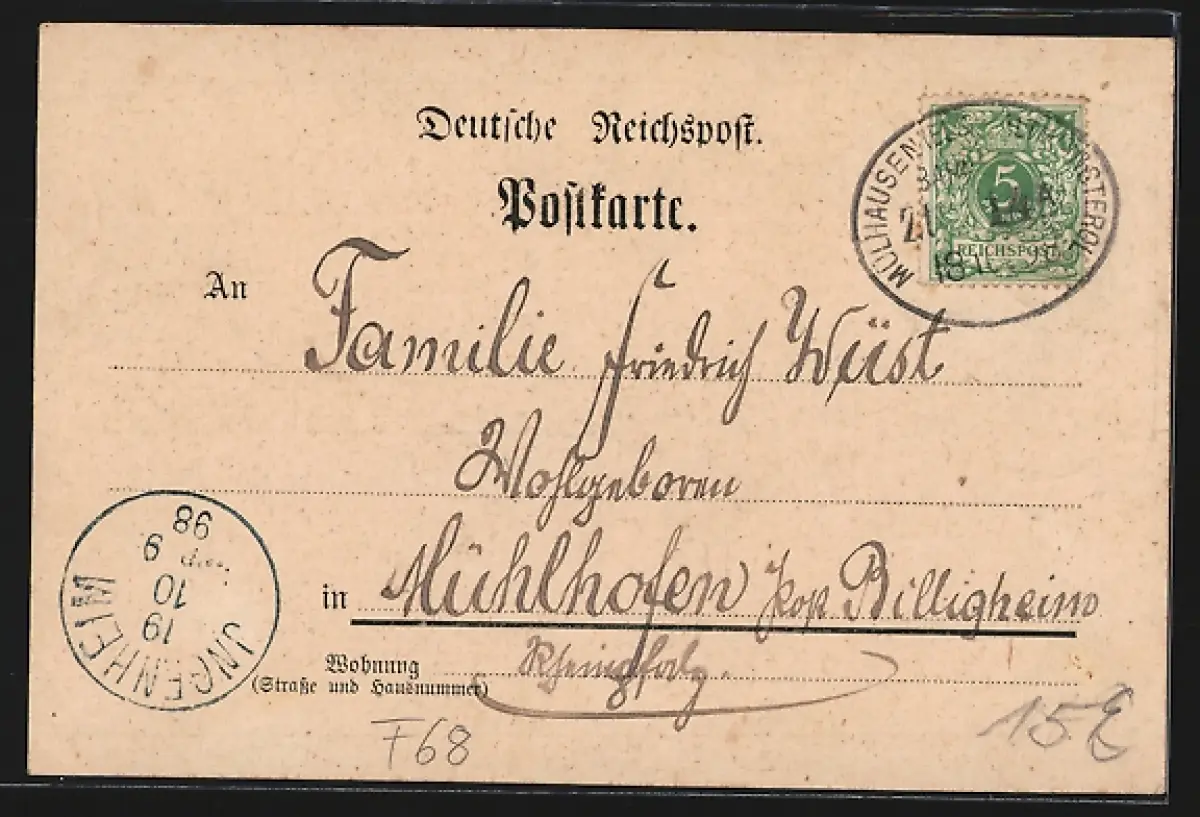 Deutsche Reichspost.
Postkarte.
MÜLHAUSEN (ELS.
5
REICHSPOST
An Familie Friedrich Wüst
Wohlgeboren
in Mühlhofen Post Billigheim
Wohnung Rheinpfalz.
(Straße und Hausnummer)
JNGENHEIM
19
10
9
98
F68
15E